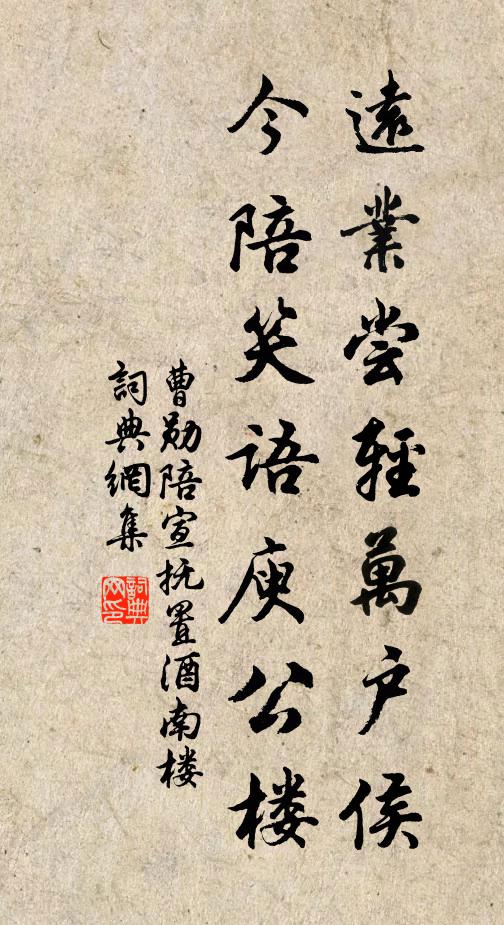 遠業尝輕萬户侯
今陪笑语庾公楼
曹勋陪宣抚置酒南楼
詞典網集
詞典
网印